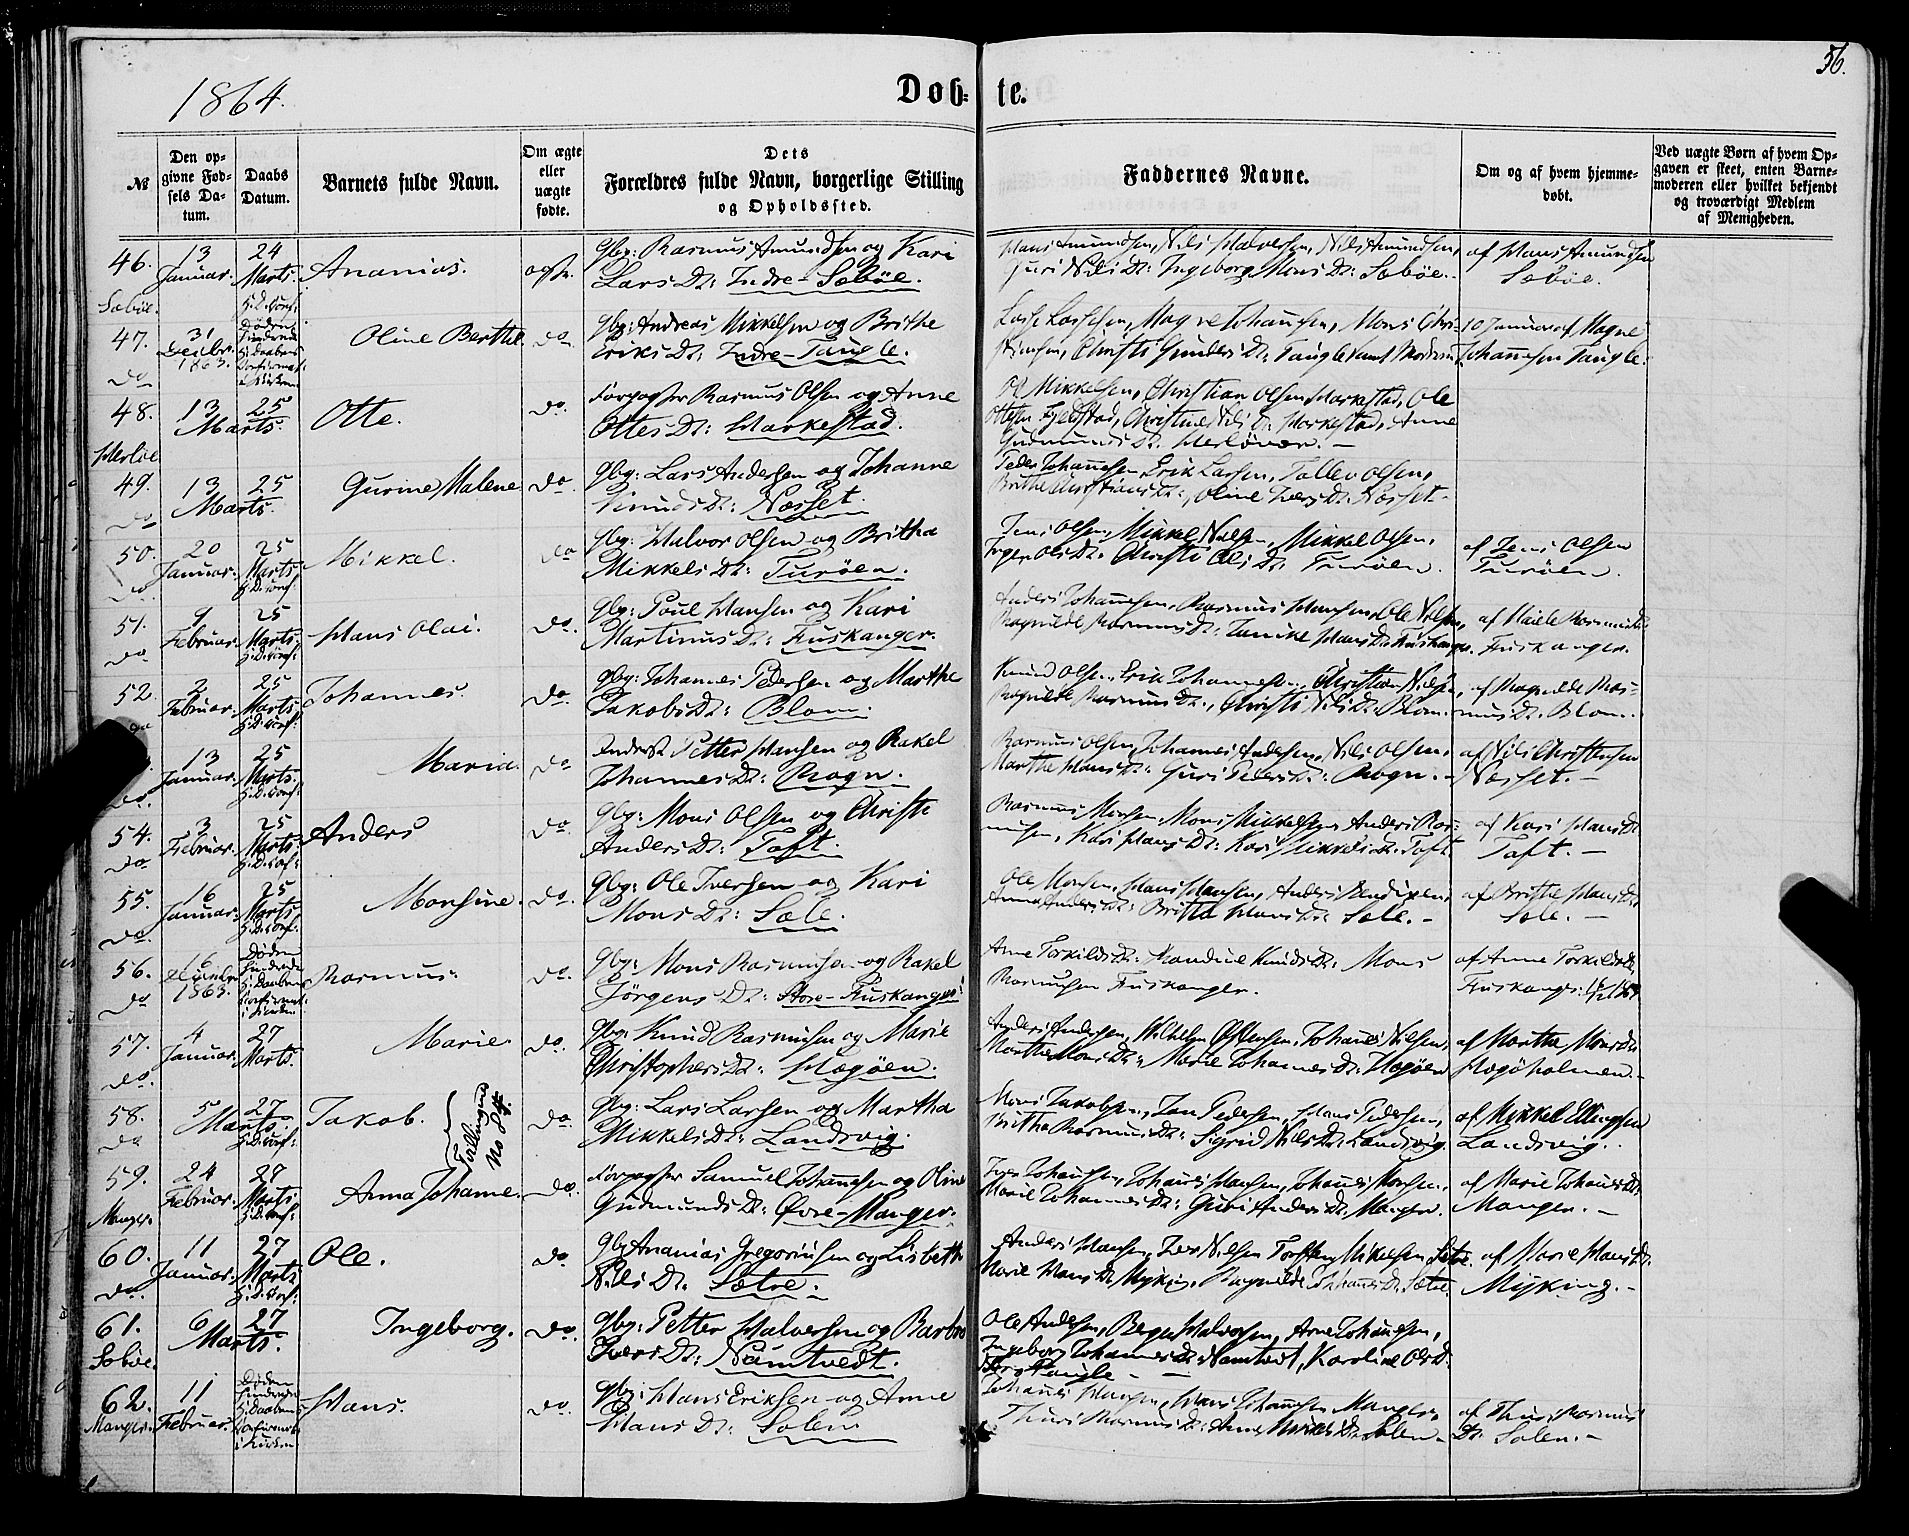 56.
1864.
Døb- te.
№
Den op-
givne Fød-
sels Da-
tum.
Daabs
Datum.
Barnets fulde Navn.
Om ægte
eller
uægte
fødte.
Dets
Forældres fulde Navn, borgerlige Stilling
og Opholdssted.
Faddernes Navne.
Om og af hvem hjemme-
døbt.
Ved uægte Børn af hvem Op-
gaven er skeet, enten Barne-
moderen eller hvilket bekjendt
og troværdigt Medlem
af Menigheden.
46. 13 Januar. 24 Marts. Ananias. Gbr: Rasmus Amundsen og Kari
Sæbøe. Lars Dt: Indre-Sæbøe.
Hans Amundsen, Nils Halversen, Nils Amundsen,
Guri Nils Dt: Ingeborg Mons Dt: Sæbøe.
af Hans Amundsen
Sæbøe.
47. 31 Decbr. 1863. Døden hindrede H. Daabens Confirmat: i Kirken
do Oline Berthe do Gbr: Andreas Mikkelsen og Brithe
Eriks Dt: Indre-Tangle.
Lasse Lassesen, Magne Johannesen, Mons Chri-
stensen, Christi Gunders Dt: Tangle samt Moderen
10 Januar af Magne
Johannesen Tangle.
48. 13 Marts. 25 Otte. do. Forpagter Rasmus Olsen og Anne
Herløe Ottes Dt: Markestad.
Ol Mikkelsen, Christian Olsen Markestad, Ole
Ottesen Fjeldstad, Christine Nils Dt Markestad, Anne
Gudmunds Dt: Herløvær. —
49. 13 Marts. 25 Gurine Malene do Gbr: Lars Andersen og Johanne
do Knuds Dt: Næsset.
Peder Johannesen, Erik Larsen, Tollev Olsen,
Brithe Christians Dt:, Oline Ivers Dt: Næsset.
50. 20 Januar. 25 Marts H.D. Conf: Mikkel. do Gbr: Halvor Olsen og Britha
do. Mikkels Dt: Turøen.
Jens Olsen, Mikkel Nilsen, Mikkel Olsen,
Inger Ols Dt: Christi Ols Dt: Turøen.
af Jens Olsen
Turøen.
51. 9 Februar. 25 Marts H.D. Conf: Hans Olai. do. Gbr: Poul Hansen og Kari
do Martinus Dt: Fuskanger.
Anders Johannesen, Rasmus Hansen, Ole Nilsen,
Ragnilde Rasmus Dt: Hans Dt Fuskanger.
Fuskanger.
52. 2 Februar. 25 Marts. H.D. Conf: Johannes. do Gbr: Johannes Pedersen og Marthe
do Jakobs Dt: Blom.
Knud Olsen, Erik Johannesen, Christian Nilsen,
Ragnilde Rasmus Dt., Christi Nils Dt: Blom.
af Ragnilde Ras-
mus Dt: Blom.
13 Januar. 25 Marts. H.D. Conf: Maria. do Petter Hansen og Rakel
do. Johannes Dt: Rogn.
Rasmus Olsen, Johannes Andersen, Nils Olsen,
Marthe Hans Dt: Guri Peders Dt: Rogn. —
af Nils Christensen
Næsset. —
54. 3 Februar. 25 Marts. H.D. Conf: Anders do. Gbr: Mons Olsen og Christi
do Anders Dt: Toft.
Rasmus Monsen, Mons Mikkelsen, Anders Ras-
musen, Kari Hans Dt: Kari Mikkels Dt: Toft.
af Kari Hans Dt
Toft. —
55. 16 Januar. 25 Marts H.D. Conf: Monsine. do. Gbr: Ole Iversen og Kari
do. Mons Dt: Sæle.
Ole Monsen, Hans Hansen, Anders
Anna Anders Dt: Britha Hans Dt: Sæle. —
af Brithe Hans Dt:
Sæle. —
56. 16 December 1863. Døden hindrede H. Daabens Confirmat: i Kirken
do Rasmus. do. Gbr: Mons Rasmusen og Rakel
Jörgens Dt: Store-Fuskanger.
Anne Torkilds Dt: Mandine Knuds Dt: Mons
Rasmusen Fuskanger.
af Anne Torkilds Dt,
Fuskanger:
57. 4 Januar. 27 Marts. Marie. do. Gbr: Knud Rasmusen og Marie
do. Christophers Dt: Hagøen.
Anders Andersen, Wilhelm Johannes Nilsen,
Marthe Mons Dt: Marie Johannes Dt: Hagøen
af Marthe Mons Dt:
Hagøholmen.
58. 5 Marts. 27 H.D. Conf: Jakob. do Gbr: Lars Larsen og Martha
do Mikkels Dt: Landsvig.
Mons Jakobsen, Jan Pedersen, Hans Pedersen,
Britha Rasmus Dt: Sigrid Nils Dt: Landsvig.
af Mikkel Ellingsen
Landsvig.
Tvillingerne
No 84.
59. 24 Februar. 27 Marts H.D. Conf: Anna Johanne. do. Forpagter Samuel Johannesen og Oline
Manger. Gudmunds Dt: Øvre-Manger.
Iver Johannesen, Johannes Hansen, Johannes Monsen,
Marie Johannes Dt: Guri Anders Dt: Manger.
af Marie Johannes Dt:
Manger. —
60. 11 Januar. 27 Marts H.D. Conf: Ole. do Gbr Ananias Gregoriusen og Lisbeth
do. Nils Dt: Sætre.
Anders Hansen, Iver Nilsen Torsten Mikkelsen Sætre.
Marie Hans Dt Myking, Ragnilde Johannes Dt: Sætre.
af Marie Hans Dt:
Myking. —
61. 6 Marts. 27 Ingeborg. do. Gbr: Petter Halversen og Barbro
Sæbøe. Ivers Dt: Namtvedt.
Ole Andersen, Berge Halversen, Arne Johannesen,
Ingeborg Johannes Dt: Namtvedt, Karoline Ols Dt
Tangle —
62. 11 Februar. Døden hindrede H. Daabens Confirmat: i Kirken
Manger. Hans. do. Gbr: Hans Eriksen og Anne
Hans Dt: Solem
Johannes Hansen, Hans Johannesen Manger,
Thuri Rasmus Dt: Anne Mikkels Dt: Solem
af Thuri Rasmus
Dt: Solem. —